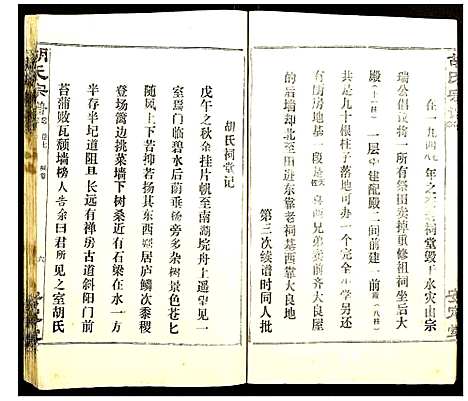 在一九四九年之 祠堂毁于水灾由宗
瑞公倡议将一所有祭田卖掉重修祖祠坐后大
殿(十一柱)一层 中建配殿二间前建一前(八柱)
共是九十根柱子落地可办一所完全小学另还
有厨房地基一段是 喜两兄弟卖前多大良屋
的后墙却北至田进东靠老祠基西靠大良地
第三次续谱时同人批
胡氏宗谱
胡氏祠堂记
戊午之秋余挂片帆至南湖垸舟上遥望
室焉门临碧水后荫垂杨旁多杂树景色苍匕
随风上下若抑若扬其东西 居庐鳞次黍稷
登场篱边挑菜墙下树桑近有石梁在水一方
半存半圮道阻且长远有禅房古道斜阳门前
苔蒲败瓦颓墙榜人告余曰君所见之室胡氏
胡氏宗谱 卷七
六
安定堂